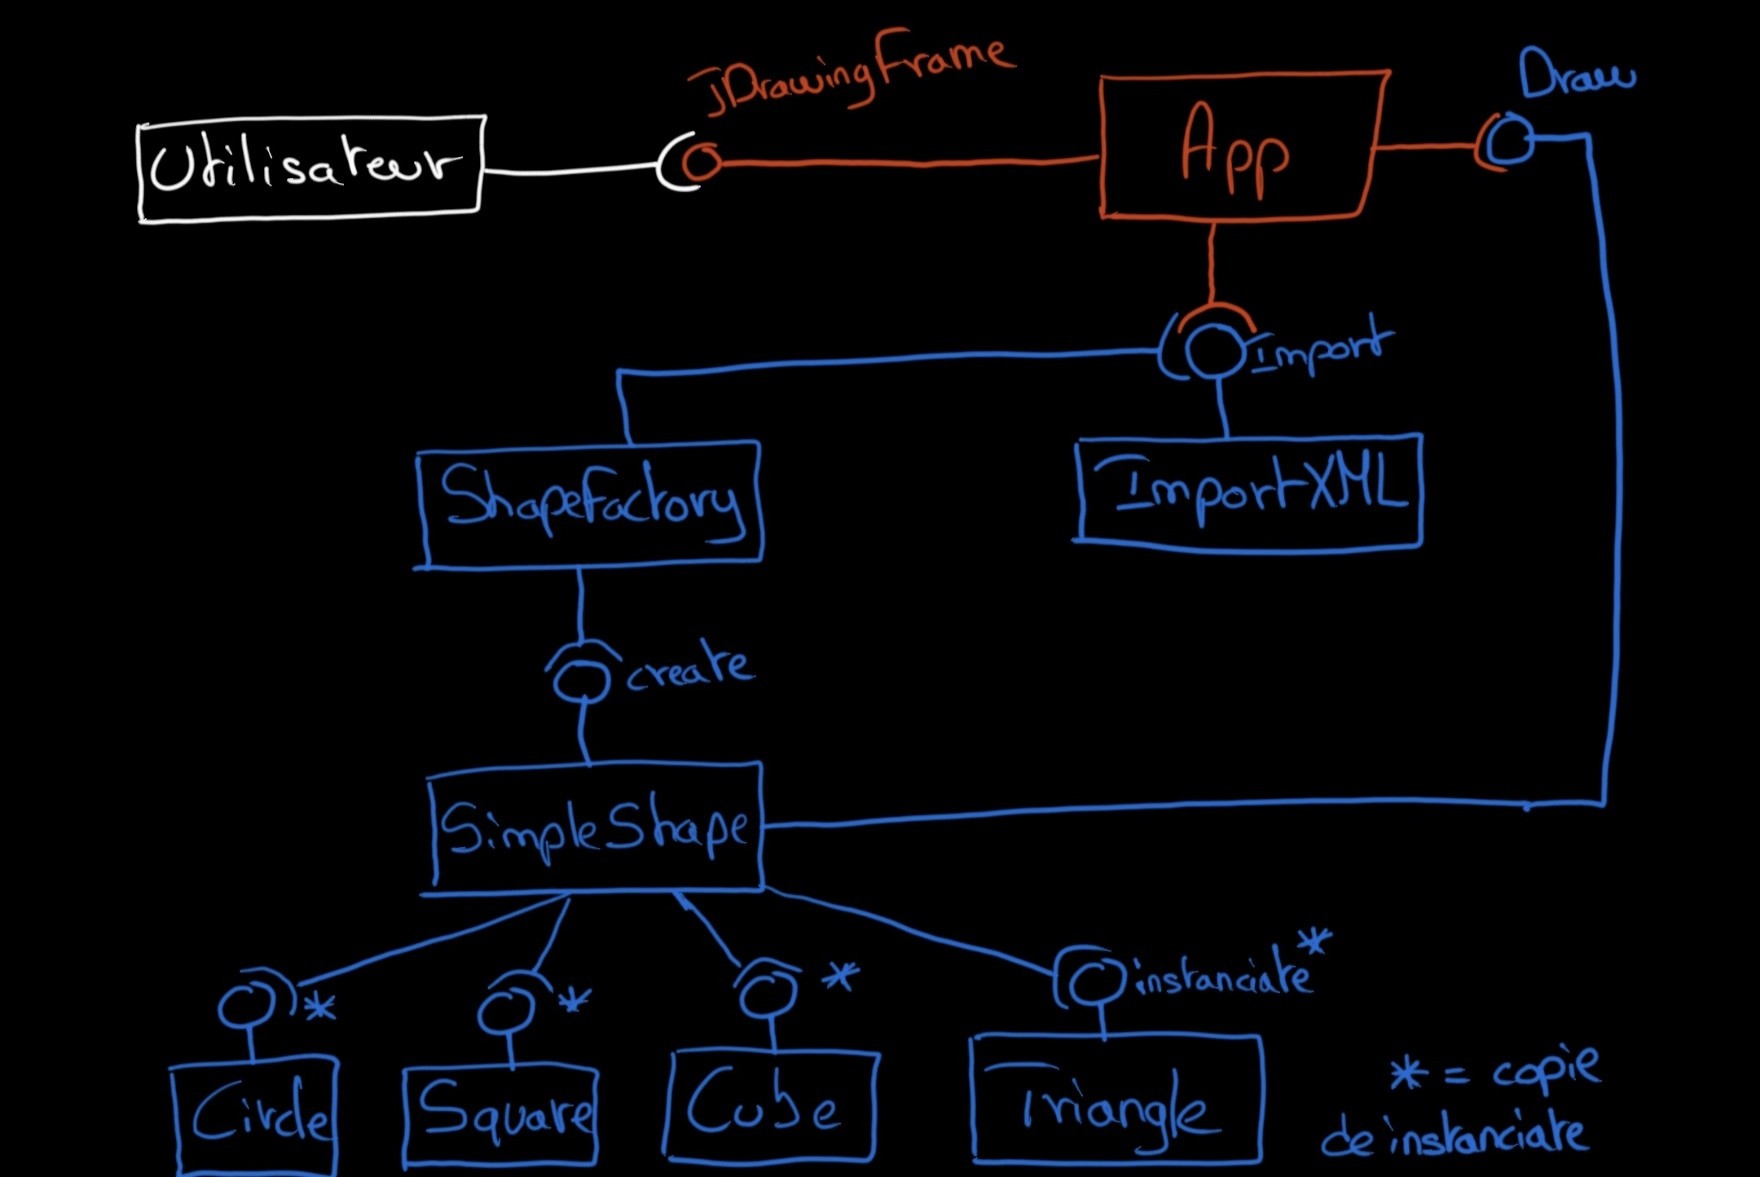 JDrawingFrame
Draw
Utilisateur
App
Import
ShapeFactory
ImportXML
create
SimpleShape
*
*
*
instanciate*
Circle
Square
Cube
Triangle
* = copie
de instanciate